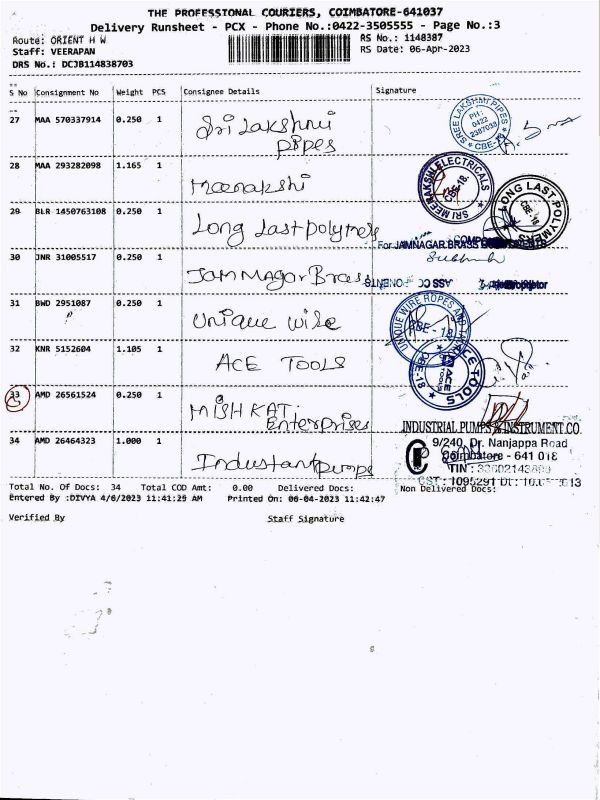 THE PROFESSIONAL COURIERS, COIMBATORE-641037
Delivery Runsheet - PCX - Phone No.:0422-3505555 - Page No.:3
Route: ORIENT H W
RS No.: 1148387
Staff: VEERAPAN
RS Date: 06-Apr-2023
DRS No.: DCJB114838703
S No Consignment No Weight PCS Consignee Details Signature
27 MAA 570337914 0.250 1 Sri Lakshmi
pipes
SREE LAKSHMI PIPES
PH: 0422 2387038
CBE-18
28 MAA 293282098 1.165 1 Meenakshi
SRI MEENAKSHI ELECTRICALS
CBE-18.
29 BLR 1450763108 0.250 1 Long Last polymers
LONG LAST POLYMERS
CBE-18
For JAMNAGAR BRASS COMPONENTS
30 JNR 31005517 0.250 1 Jam Nagar Brass
Proprietor
31 BWD 2951087 0.250 1 Unique wire
UNIQUE WIRE ROPES AND
CBE - 18
32 KNR 5152604 1.105 1 ACE TOOLS
ACE TOOLS
CBE-18
33 AMD 26561524 0.250 1 MISHKAT.
Enterprises
34 AMD 26464323 1.000 1 Industantpumps
INDUSTRIAL PUMPS & INSTRUMENT CO.
9/240, Dr. Nanjappa Road
Coimbatore - 641 018
TIN :
CST : 1095291 Dt :
Total No. Of Docs: 34 Total COD Amt: 0.00 Delivered Docs: Non Delivered Docs:
Entered By :DIVYA 4/6/2023 11:41:25 AM Printed On: 06-04-2023 11:42:47
Verified By Staff Signature